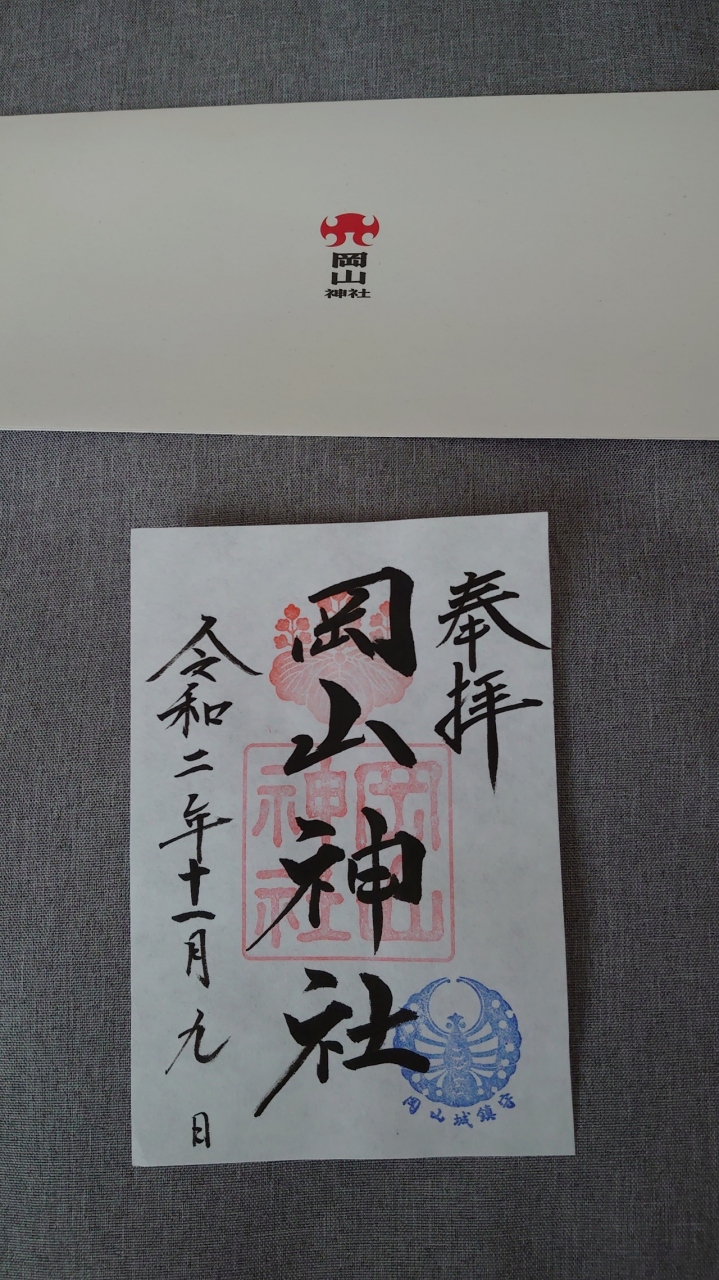 岡
山
神社
奉拝
岡山神社
令和二年十一月九日
岡山
神社
岡山城鎮守